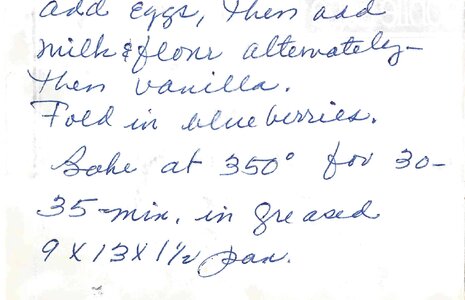 add eggs, then add
milk & flour alternately–
then vanilla.
Fold in blueberries.
Bake at 350° for 30–
35–min. in greased
9 X 13 X 1½ pan.